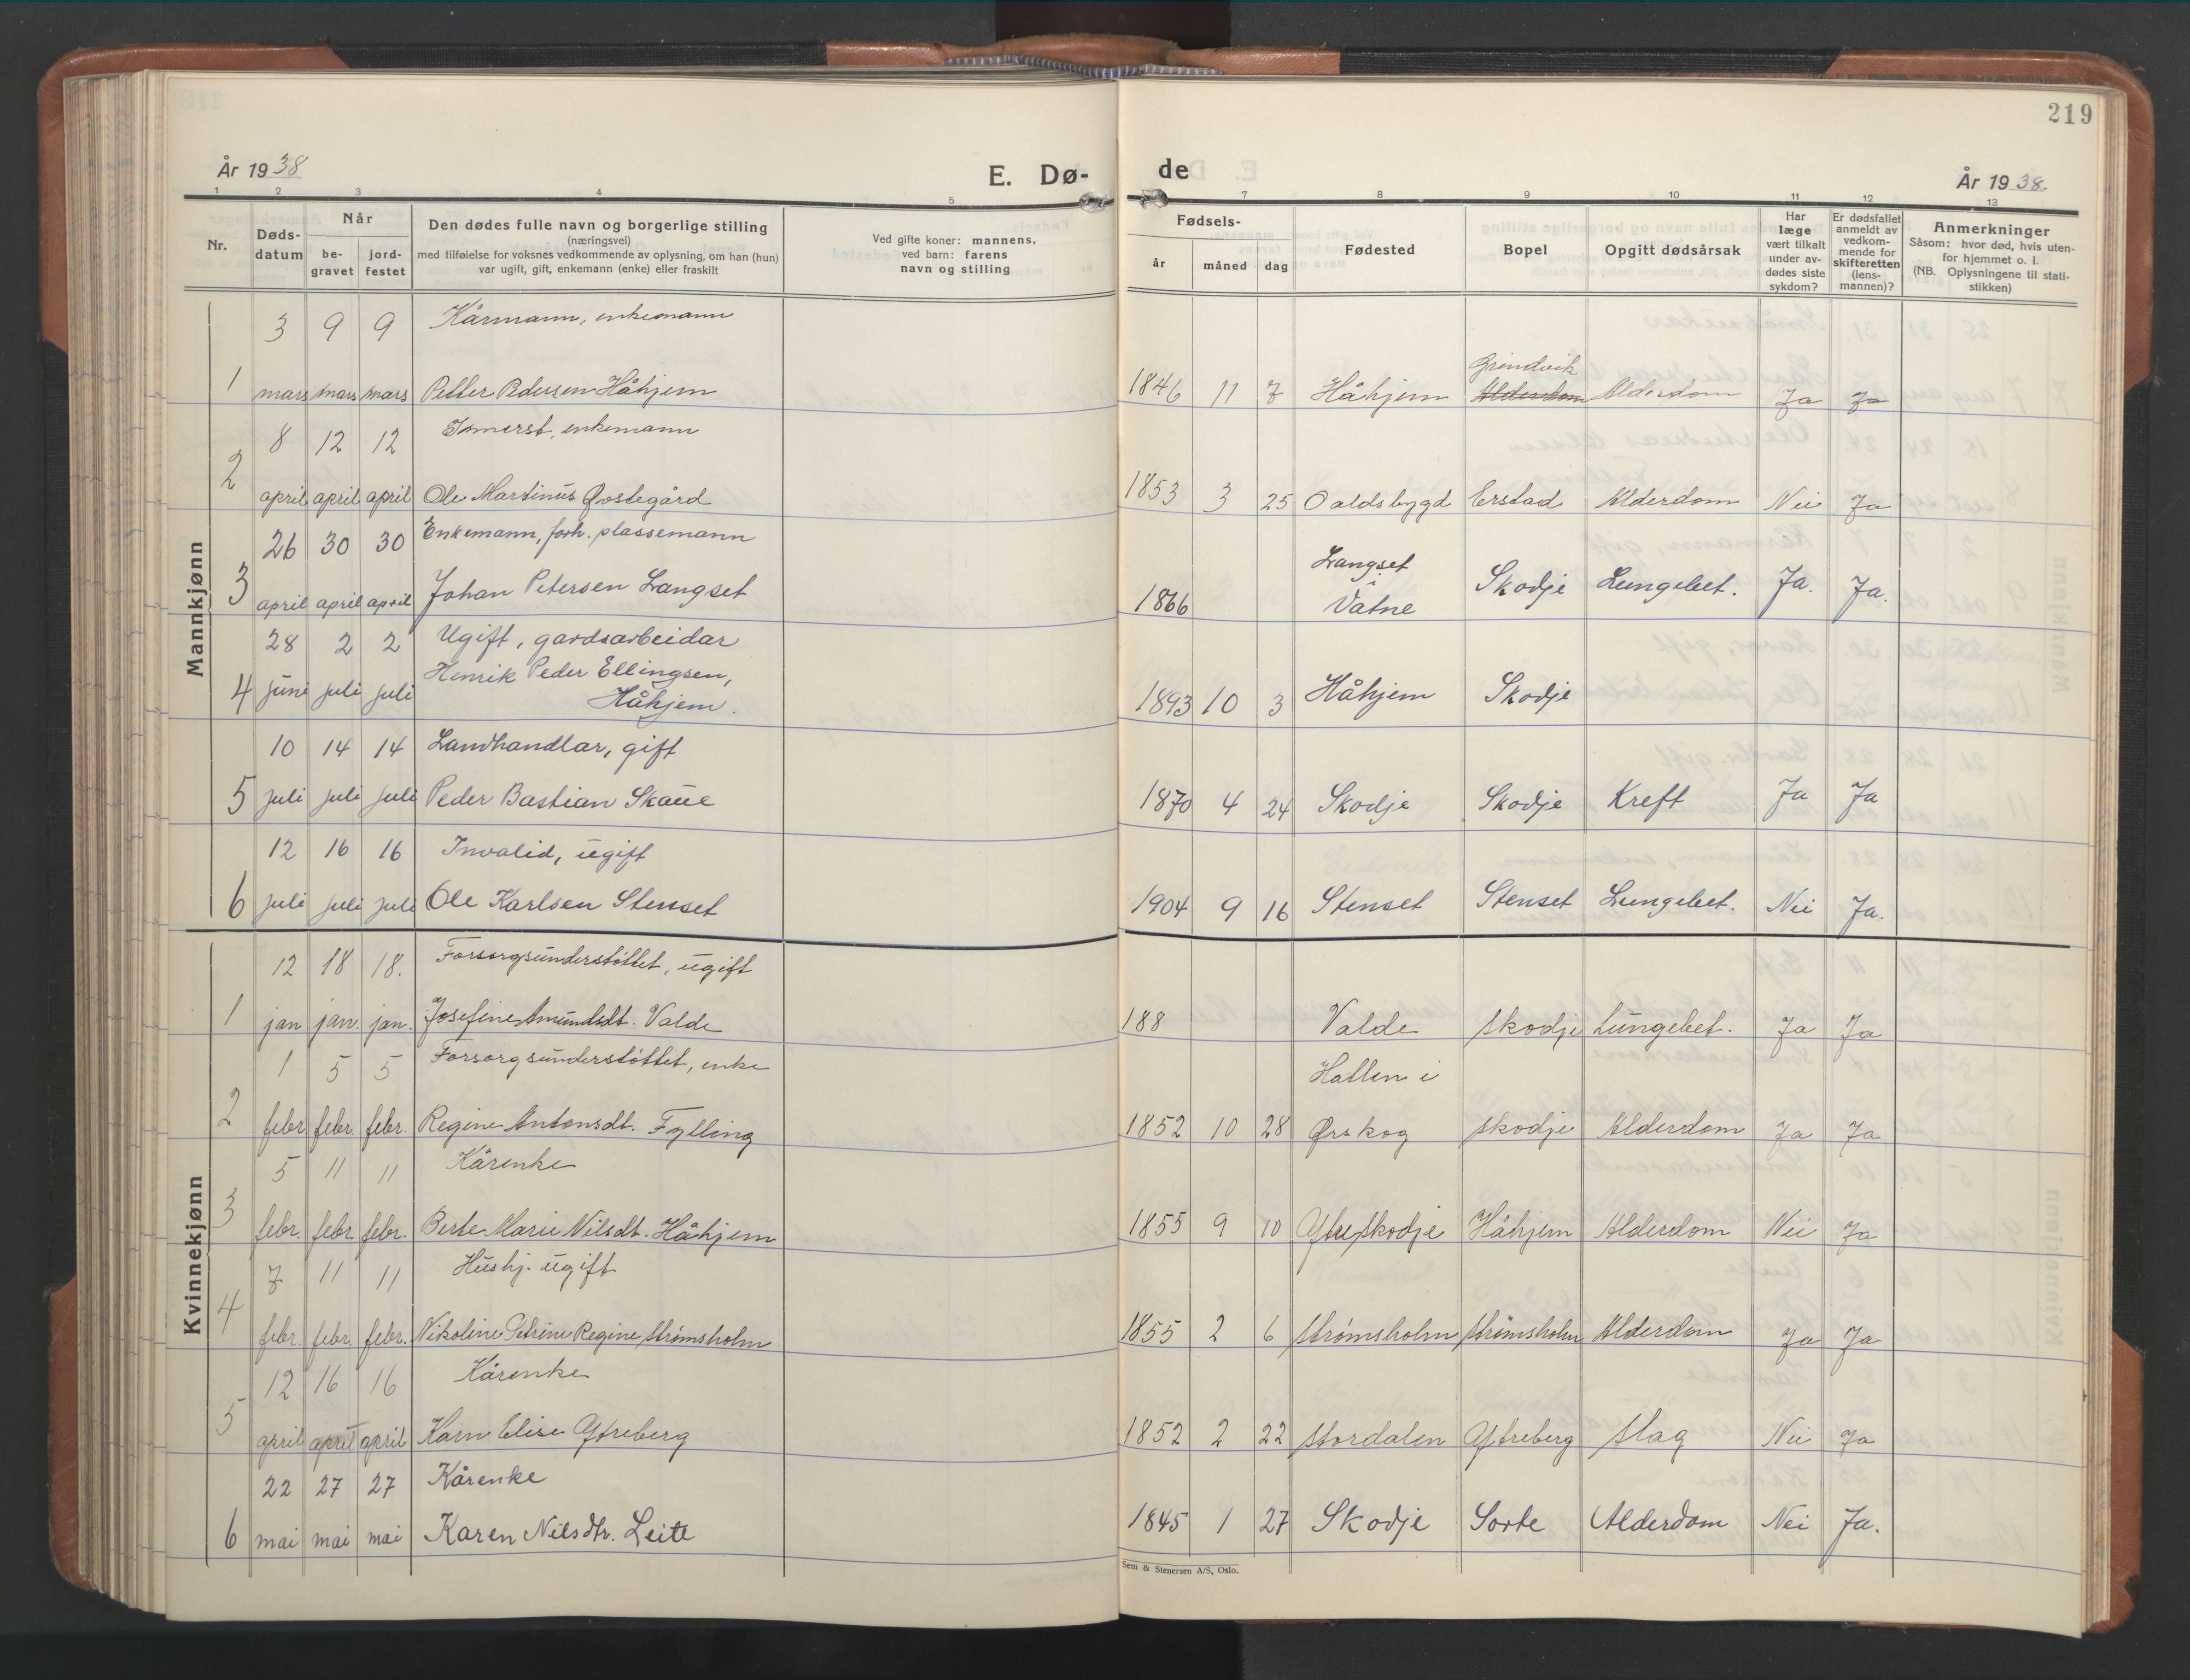 219
År 1938
E. Dø-
de
År 1938.
1 2 3 4 5
7 8 9 10 11 12 13
Nr.
Døds-
datum
Når
be-
gravet
jord-
festet
Den dødes fulle navn og borgerlige stilling
(næringsvei)
med tilføielse for voksnes vedkommende av oplysning, om han (hun)
var ugift, gift, enkemann (enke) eller fraskilt
Ved gifte koner: mannens,
ved barn: farens
navn og stilling
Fødsels-
år måned dag
Fødested
Bopel
Opgitt dødsårsak
Har
læge
vært tilkalt
under av-
dødes siste
sykdom?
Er dødsfallet
anmeldt av
vedkom-
mende for
skifteretten
(lens-
mannen)?
Anmerkninger
Såsom: hvor død, hvis uten-
for hjemmet o. l.
(NB. Oplysningene til stati-
stikken)
Mannkjønn
3 9 9 Kårmann, enkemann
Grindvik
1 mars mars mars Petter Pedersen Håhjem 1846 11 7 Håhjem Alderdom Alderdom Ja Ja
8 12 12 enkemann
2 april april april Ole Martinus Øvstegård 1853 3 25 Erstad Alderdom Nei Ja
26 30 30 Enkemann, forh. plassemann
Langset
3 april april april Johan Petersen Langset 1866 i Vatne Skodje Lungebet. Ja. Ja.
28 2 2 Ugift, gardsarbeidar
4 juni juli juli Henrik Peder Ellingsen,
Håhjem. 1893 10 3 Håhjem Skodje
10 14 14 Landhandlar, gift
5 juli juli juli Peder Bastian Skaue 1870 4 24 Skodje Skodje Kreft Ja Ja
12 16 16 Invalid, ugift
6 juli juli juli Ole Karlsen Stenset 1904 9 16 Stenset Stenset Lungebet. Nei Ja.
Kvinnekjønn
12 18 18. Forsorgsunderstöttet, ugift
1 jan jan. jan. Josefine Amundsdt. Valde 188 Valde Skodje Lungebet. Ja Ja
1 5 5 Forsorgsunderstöttet, enke
Hatlen i
2 febr febr. febr. Regine Antonsdt. Fylling 1852 10 28 Ørskog Skodje Alderdom Ja Ja
5 11 11 Kårenke
3 febr. febr febr. Berte Marie Nilsdt. Håhjem 1855 9 10 Ytreskodje Håhjem Alderdom Nei Ja
7 11 11 Hushj. ugift
4 febr. febr. febr. Nikoline Petrine Regine Strömsholm 1855 2 6 Strömsholm Strömsholm Alderdom Ja Ja
12 16 16 Kårenke
5 april april april Karn Elise Ytreberg 1852 2 22 Stordalen Ytreberg Slag Nei Ja
22 27 27 Kårenke
6 mai mai mai Karen Nilsdtr. Leite 1845 1 27 Skodje Sorte Alderdom Nei Ja.
Sem & Stenersen A/S, Oslo.